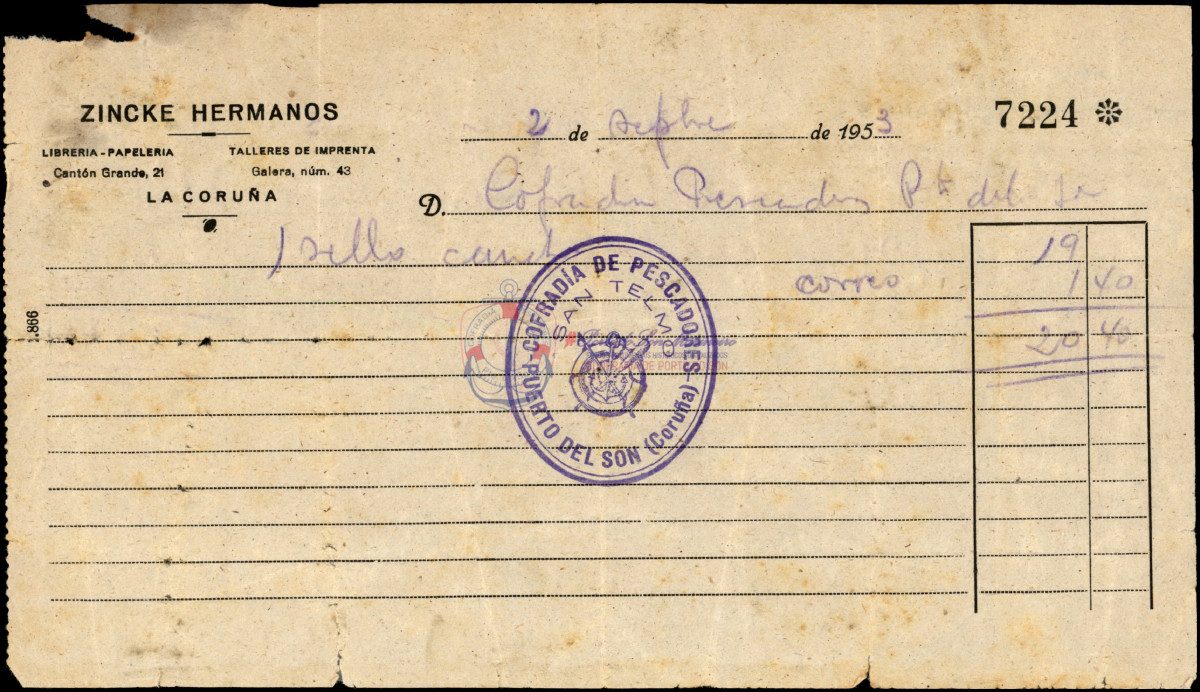 ZINCKE HERMANOS
LIBRERIA-PAPELERIA
Cantón Grande, 21
TALLERES DE IMPRENTA
Galera, núm. 43
LA CORUÑA
2 de sepbre de 1953
7224
D. Cofradia Pescadores Pto del Son
1 sello cauch 19
correo 1 40
20 40
1.866
COFRADÍA DE PESCADORES
SAN TELMO
PUERTO DEL SON (Coruña)